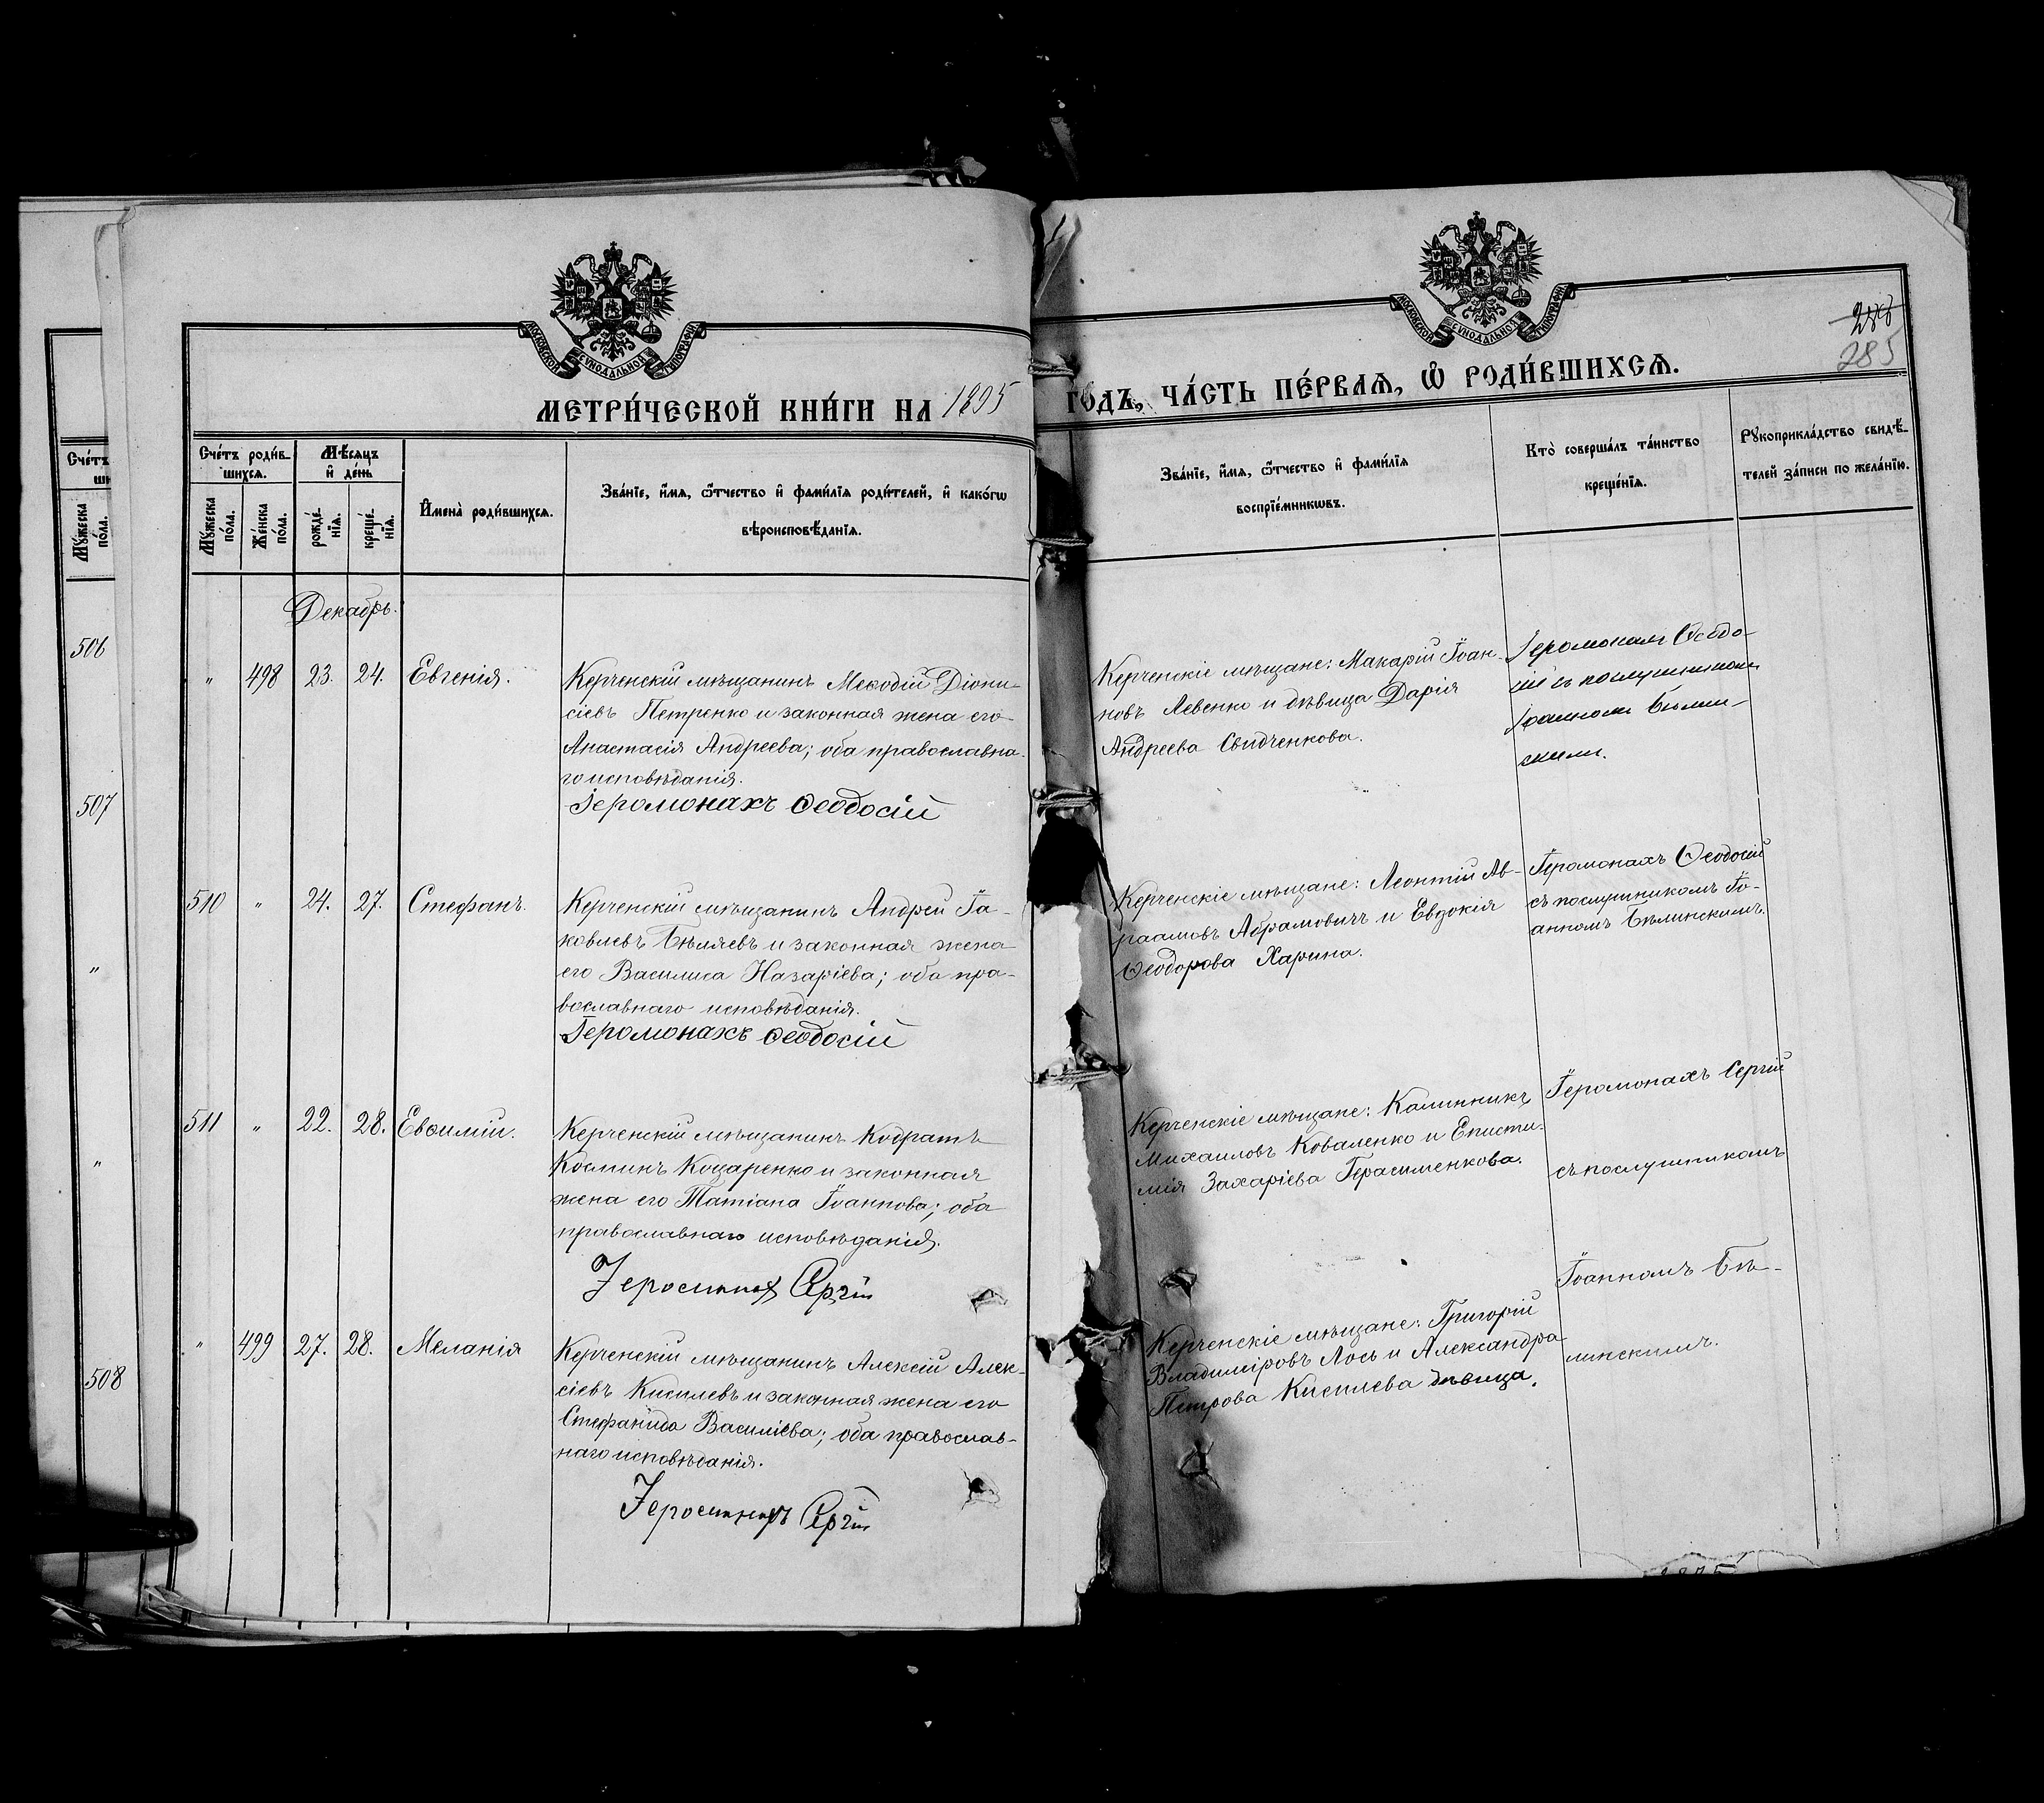 МОСКОВСКОЙ СѴНОДАЛЬНОЙ ТИПОГРАФІИ
МЕТРИ́ЧЕСКОЙ КНИ́ГИ НА 1895
Сче́тъ роди́в-
шихся.
Мѣ́сяцъ
и҆ де́нь
Мꙋ́жеска по́ла.
Же́нска по́ла.
рожде́-
нїя.
креще́-
нїя.
И҆мена̀ роди́вшихся.
Зва́нїе, и҆́мя, ѻ҆́тчество и҆ фами́лїя роди́телей, и҆ како́гѡ
вѣроисповѣ́данїя.
Декабрь.
" 498 23. 24. Евгенія.
Керченскій мѣщанинъ Меѳодій Діони-
сіевъ Петренко и законная жена его
Анастасія Андреева; оба православна-
го исповѣданія.
Іеромонахъ Ѳеодосій
510 " 24. 27. Стефанъ.
Керченскій мѣщанинъ Андрей Іа-
ковлевъ Бѣляевъ и законная жена
его Василиса Назаріева; оба пра-
вославнаго исповѣданія.
Іеромонахъ Ѳеодосій
511 " 22. 28. Евѳимій.
Керченскій мѣщанинъ Кодратъ
Косминъ Коцаренко и законная
жена его Татіана Іоаннова; оба
православнаго исповѣданія.
Іеромонахъ Сергій
" 499 27. 28. Меланія
Керченскій мѣщанинъ Алексій Алек-
сіевъ Киселевъ и законная жена его
Стефанида Василіева; оба православ-
наго исповѣданія.
Іеромонахъ Сергій
Сче́тъ
ши
Мꙋ́жеска по́ла.
506
507
"
"
508
МОСКОВСКОЙ СѴНОДАЛЬНОЙ ТИПОГРАФІИ
285
ГО́ДЪ, ЧА́СТЬ ПЕ́РВАЯ, Ѽ РОДИ́ВШИХСЯ.
Зва́нїе, и҆́мя, ѻ҆́тчество и҆ фами́лїя
воспрїе́мникѡвъ.
Кто̀ соверша́лъ та́инство
креще́нїя.
Рꙋкоприкла́дство свидѣ́-
телей за́писи по жела́нїю.
Керченскіе мѣщане: Макарій Іоан-
новъ Левенко и дѣвица Дарія
Андреева Свидченкова.
Іеромонахъ Ѳеодо-
сій съ послушникомъ
Іоанномъ Бѣлин-
скимъ.
Керченскіе мѣщане: Леонтій Ав-
раамовъ Абрамовичъ и Евдокія
Ѳеодорова Харина.
Іеромонахъ Ѳеодосій
съ послушникомъ Іо-
анномъ Бѣлинскимъ.
Керченскіе мѣщане: Калинникъ
Михаиловъ Коваленко и Еписти-
мія Захаріева Герасименкова.
Іеромонахъ Сергій
съ послушникомъ
Іоанномъ Бѣ-
линскимъ.
Керченскіе мѣщане: Григорій
Владиміровъ Лось и Александра
Петрова Киселева дѣвица.